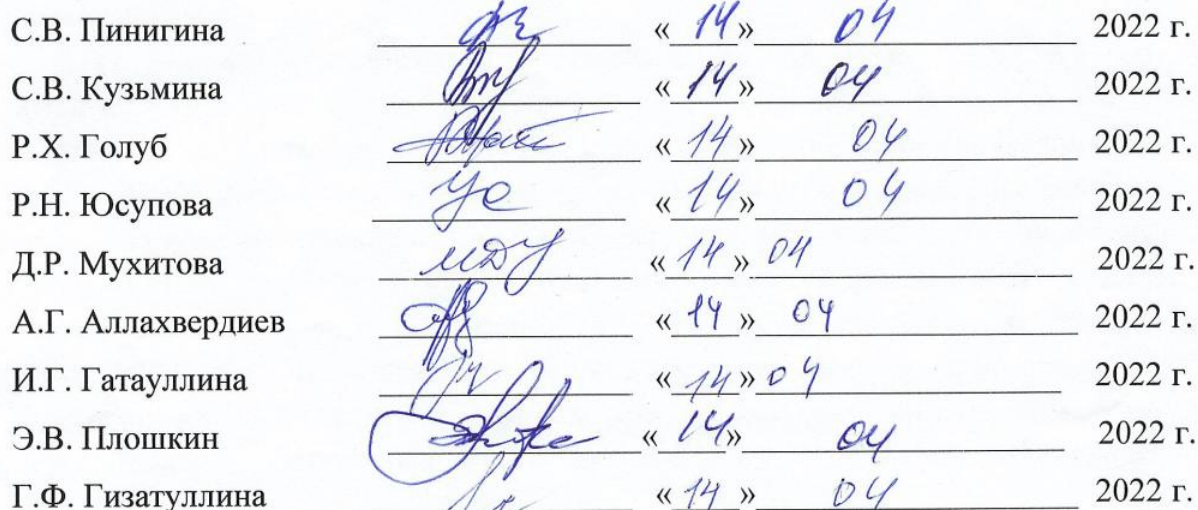 С.В. Пинигина « 14 » 04 2022 г.
С.В. Кузьмина « 14 » 04 2022 г.
Р.Х. Голуб « 14 » 04 2022 г.
Р.Н. Юсупова « 14 » 04 2022 г.
Д.Р. Мухитова « 14 » 04 2022 г.
А.Г. Аллахвердиев « 14 » 04 2022 г.
И.Г. Гатауллина « 14 » 04 2022 г.
Э.В. Плошкин « 14 » 04 2022 г.
Г.Ф. Гизатуллина « 14 » 04 2022 г.